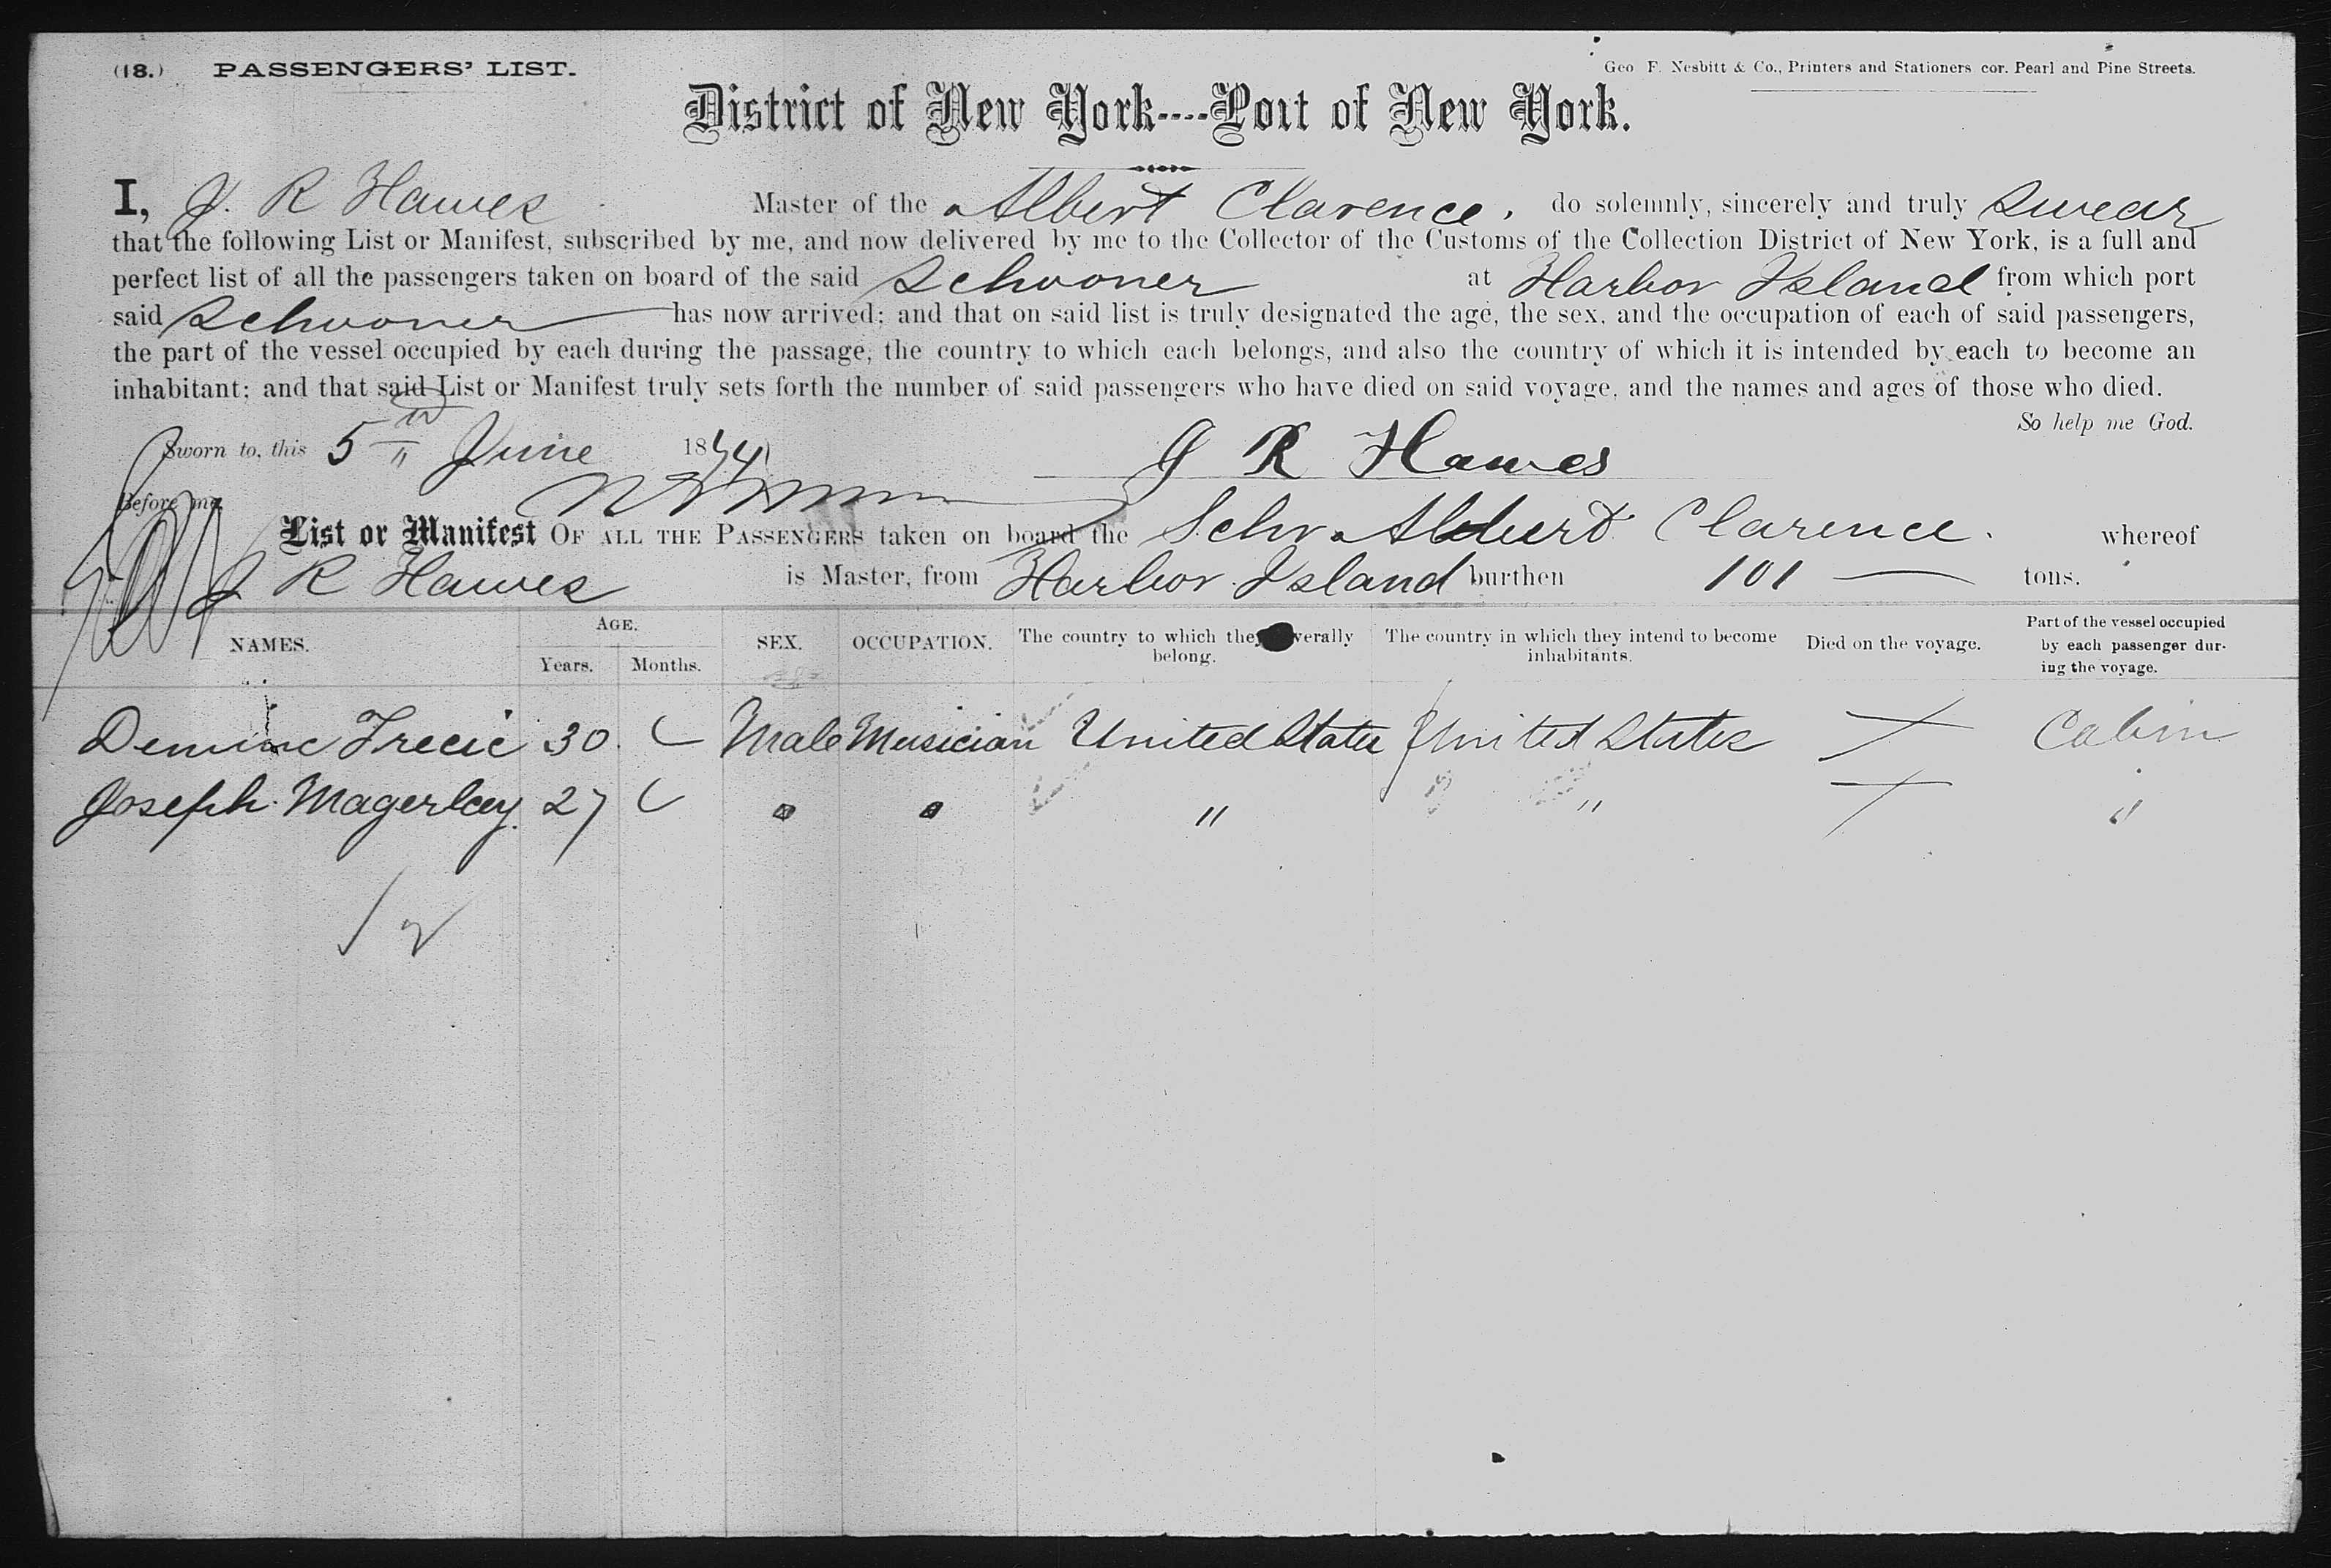 (18.) PASSENGERS' LIST.
Geo F. Nesbitt & Co., Printers and Stationers cor. Pearl and Pine Streets.
District of New York----Port of New York.
I, J. R Hawes Master of the Albert Clarence. do solemnly, sincerely and truly swear
that the following List or Manifest, subscribed by me, and now delivered by me to the Collector of the Customs of the Collection District of New York, is a full and
perfect list of all the passengers taken on board of the said Schooner at Harbor Island from which port
said Schooner has now arrived; and that on said list is truly designated the age, the sex, and the occupation of each of said passengers,
the part of the vessel occupied by each during the passage, the country to which each belongs, and also the country of which it is intended by each to become an
inhabitant; and that said List or Manifest truly sets forth the number of said passengers who have died on said voyage, and the names and ages of those who died.
So help me God.
Sworn to, this 5th June 1874 J R Hawes
Before me,
List or Manifest OF ALL THE PASSENGERS taken on board the Schr Albert Clarence. whereof
J R Hawes is Master, from Harbor Island burthen 101 tons.
NAMES. AGE. Years. Months. SEX. OCCUPATION. The country to which they verally belong. The country in which they intend to become inhabitants. Died on the voyage. Part of the vessel occupied by each passenger during the voyage.
30 Male Musician United States United States Cabin
Joseph Magerley. 27 " " " " "